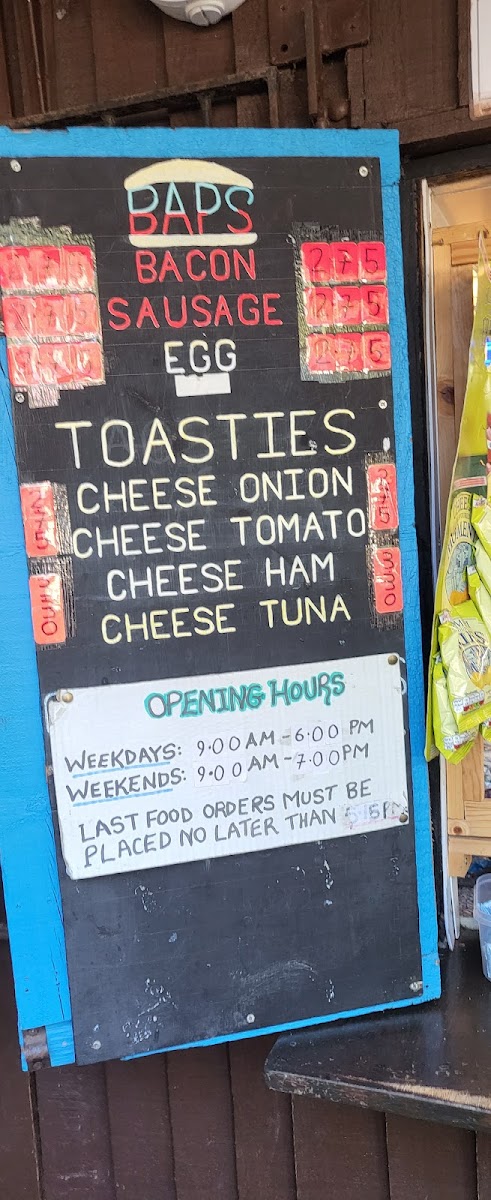 BAPS
BACON 275
SAUSAGE 275
EGG 275
TOASTIES
CHEESE ONION
CHEESE TOMATO
CHEESE HAM
CHEESE TUNA
OPENING HOURS
WEEKDAYS: 9.00 AM - 6:00 PM
WEEKENDS: 9.00 AM - 7.00 PM
LAST FOOD ORDERS MUST BE
PLACED NO LATER THAN